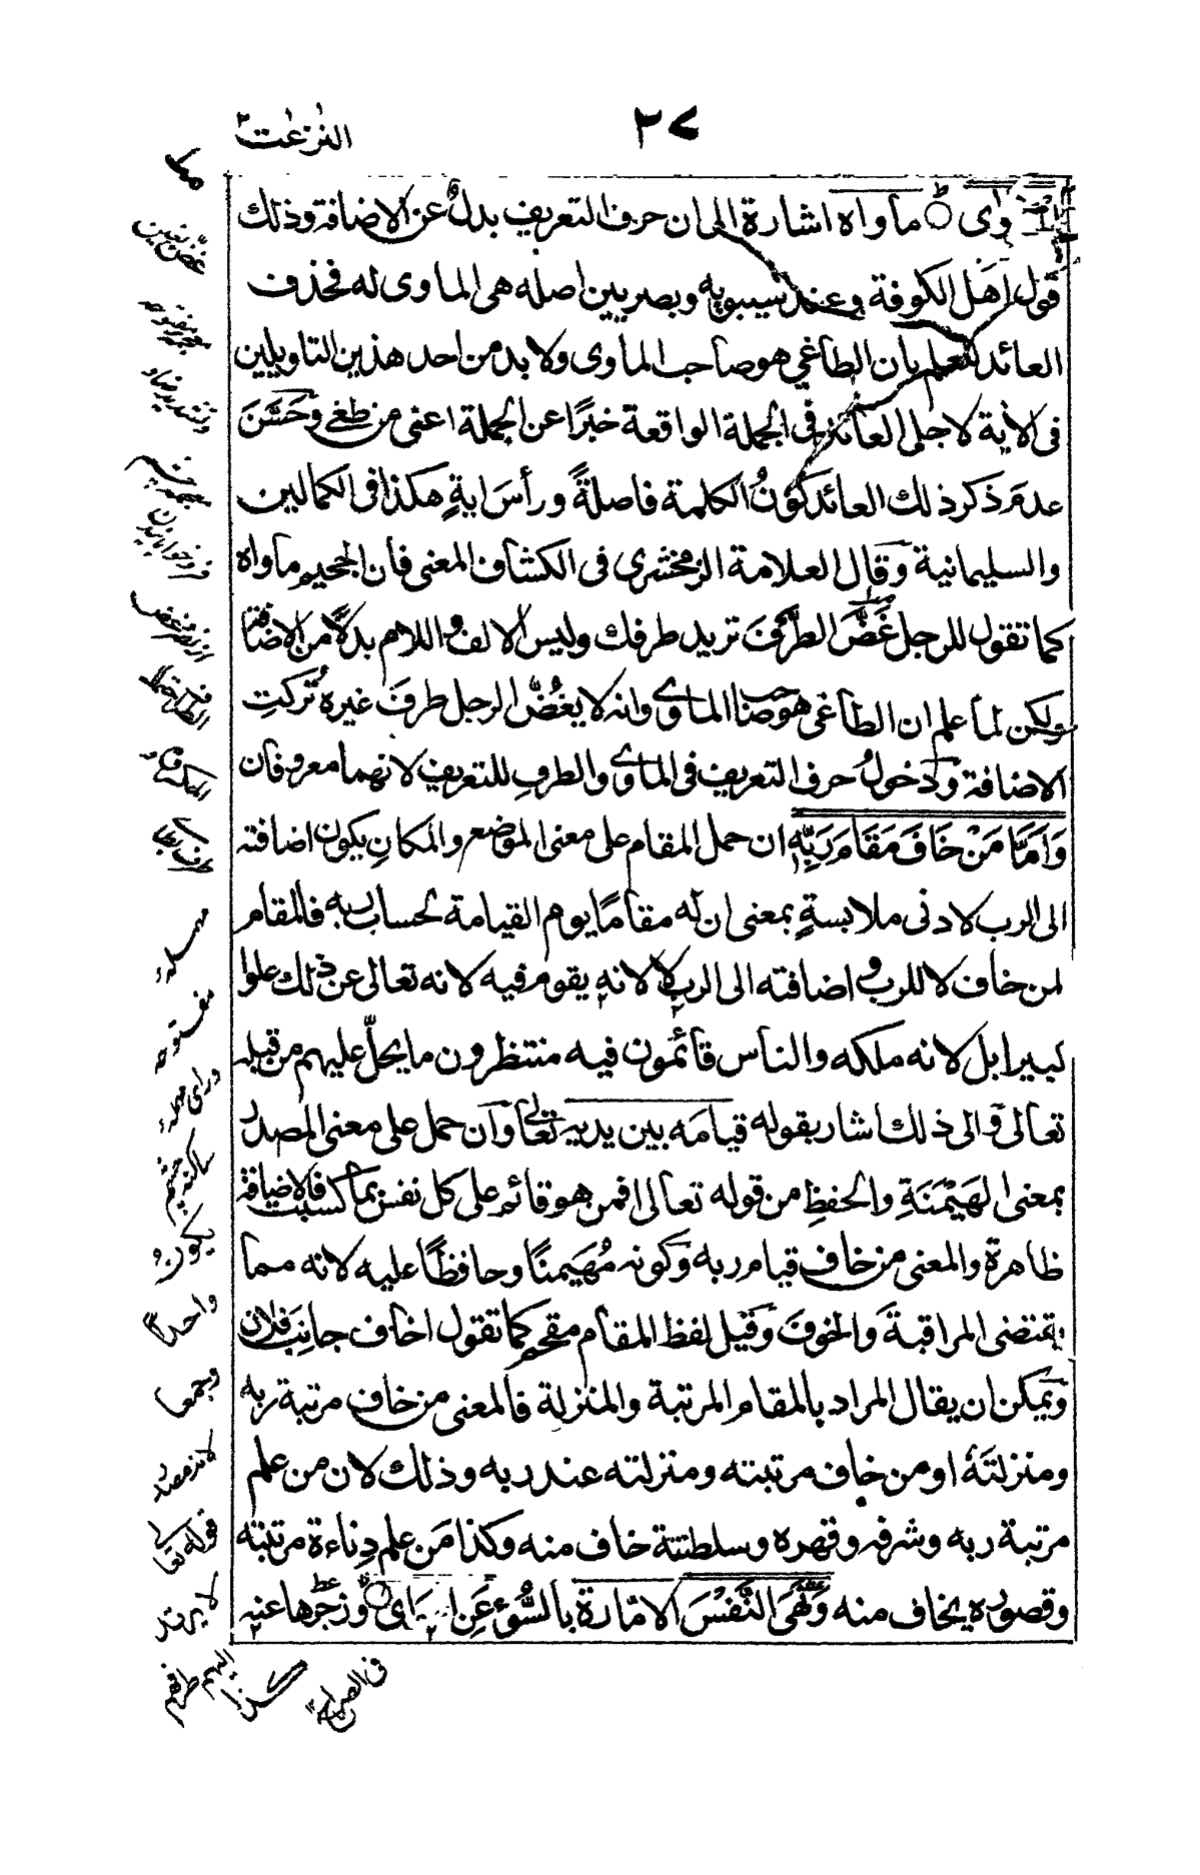 ٢٧
النزعت
وى ماواه اشارة الى ان حرف التعريف بدلٌ عن الاضافة وذلك
قول اهل الكوفة وعند سيبويه وبصريين اصله هى الماوى له فحذف
العائد للعلم بان الطاغى هو صاحب الماوى ولا بد من احد هذين التاويلين
فى الاٰية لاجل العائد فى الجملة الواقعة خبرًا عن الجملة اعنى من طغى وحَسَّنَ
عدم ذكر ذلك العائد كونُ الكلمة فاصلةً ورأسَ ايةٍ هكذا فى الكمالين
والسليمانية وقال العلامة الزمخشرى فى الكشاف المعنى فان الجحيم ماواه
كما تقول للرجل غُضَّ الطَّرْفَ تريد طرفك وليس الالف واللام بدلًا من الاضافة
ولكن لما علم ان الطاغى هو صاحب الماوى وانه لا يغُضُّ الرجل طرفَ غيره تُركتِ
الاضافة ودخولُ حرف التعريف فى الماوى والطرفِ للتعريف لانهما معروفان
وَاَمَّا مَنْ خَافَ مَقَامَ رَبِّهٖ ان حمل المقام على معنى الموضع والمكانِ يكون اضافته
الى الرب لادنى ملابسةٍ بمعنى ان له مقامًا يوم القيامة لحساب ربه فالمقام
لمن خاف لا للرب واضافته الى الرب لا لانه يقوم فيه لانه تعالى عن ذلك علوا
كبيرا بل لانه ملكه والناس قائمون فيه منتظرون ما يحلّ عليهم من قبله
تعالى والى ذلك اشار بقوله قيامَه بين يديه تعالى وان حمل على معنى المصدر
بمعنى الهَيْمَنَةِ والحفظِ من قوله تعالى افمن هو قائم على كل نفس بما كسبت فالاضافة
ظاهرة والمعنى من خاف قيام ربه وكونه مُهَيمنًا وحافظًا عليه لانه مما
يقتضى المراقبةَ والخوفَ وقيل لفظ المقام مقحم كما تقول اخاف جانِبَ فلان
ويمكن ان يقال المراد بالمقام المرتبة والمنزلة فالمعنى من خاف مرتبة ربه
ومنزلتَهٗ او من خاف مرتبته ومنزلته عند ربه وذلك لان من علم
مرتبة ربه وشرفه وقهره وسلطنته خاف منه وكذا من علم دناءة مرتبته
وقصوره يخاف منه وَنَهَى النَّفْسَ الامّارة بالسُّوْءِ عَنِ وزجرها عنه
مسلمة
مفتوحه
وراى مهمله
يكونُ
واحدًا
وجمعا
لانه مصدر
قوله تعالى
لا يرتد
اليهم طرفهم
كذا
فى الصراح